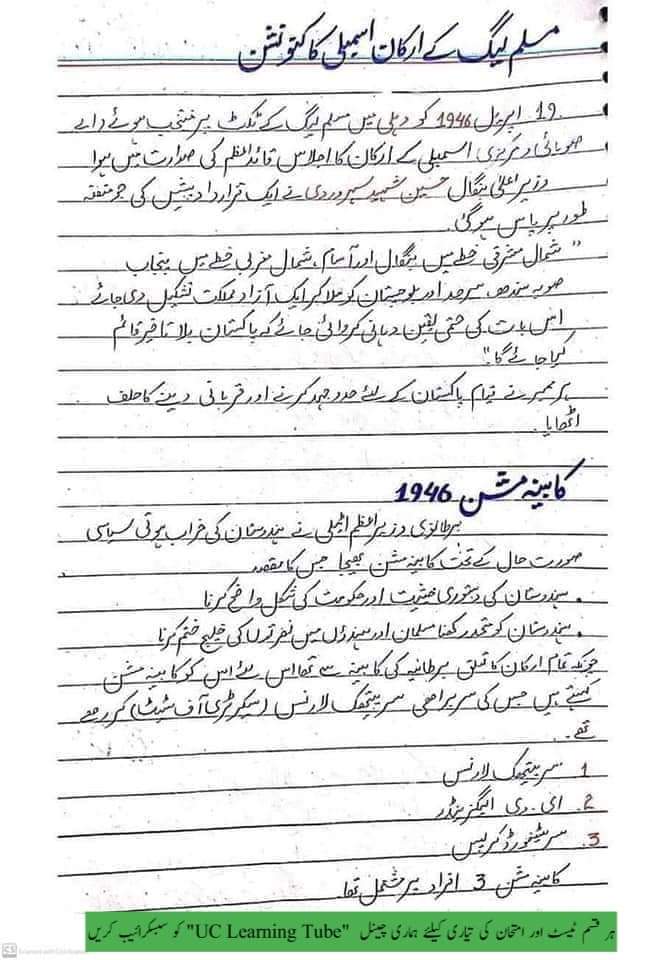 مسلم لیگ کے ارکان اسمبلی کا کنونشن
19 اپریل 1946 کو دہلی میں مسلم لیگ کے ٹکٹ پر منتخب ہونے والے
صوبائی و مرکزی اسمبلی کے ارکان کا اجلاس قائداعظم کی صدارت میں ہوا
وزیراعلیٰ بنگال حسین شہید سہروردی نے ایک قرارداد پیش کی جو متفقہ
طور پر پاس ہو گئی.
"شمال مشرقی خطے میں بنگال اور آسام، شمال مغربی خطے میں پنجاب
صوبہ سندھ، سرحد اور بلوچستان کو ملا کر ایک آزاد مملکت تشکیل دی جائے.
اس بات کی حتمی یقین دہانی کروائی جائے کہ پاکستان بلا تاخیر قائم
کیا جائے گا."
ہر ممبر نے قیام پاکستان کے لئے جدوجہد کرنے اور قربانی دینے کا حلف
اٹھایا.
کابینہ مشن 1946
برطانوی وزیراعظم اٹیلی نے ہندوستان کی خراب ہوتی سیاسی
صورت حال کے تحت کابینہ مشن بھیجا جس کا مقصد
• ہندوستان کی دستوری حیثیت اور حکومت کی شکل واضح کرنا
• ہندوستان کو متحد رکھنا مسلمان اور ہندوؤں میں نفرتوں کی خلیج ختم کرنا
چونکہ تمام ارکان کا تعلق برطانیہ کی کابینہ سے تھا اس لئے اس کو کابینہ مشن
کہتے ہیں جس کی سربراہی سر پیتھک لارنس (سیکرٹری آف سٹیٹ) کر رہے
تھے.
1 سر پیتھک لارنس
2. ای. وی الیگزینڈر
3. سر سٹیفورڈ کرپس
کابینہ مشن 3 افراد پر مشتمل تھا
ہر قسم ٹیسٹ اور امتحان کی تیاری کیلئے ہماری چینل "UC Learning Tube" کو سبسکرائیب کریں
CS Scanned with CamScanner